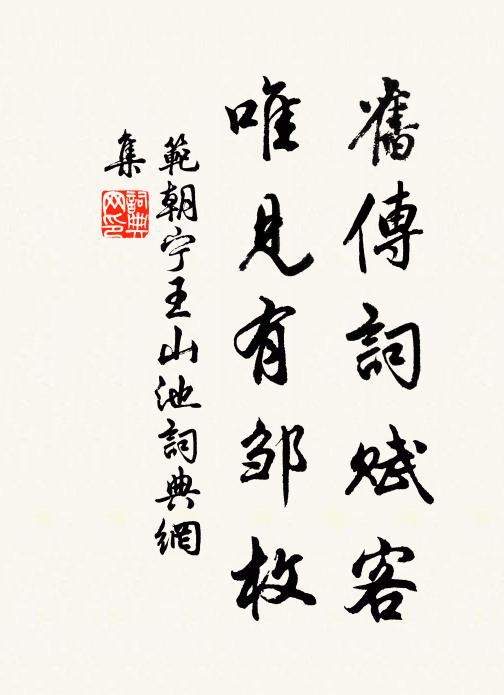 舊傳詞賦客
唯見有邹枚
範朝宁王山池詞典網
集
詞典
网印